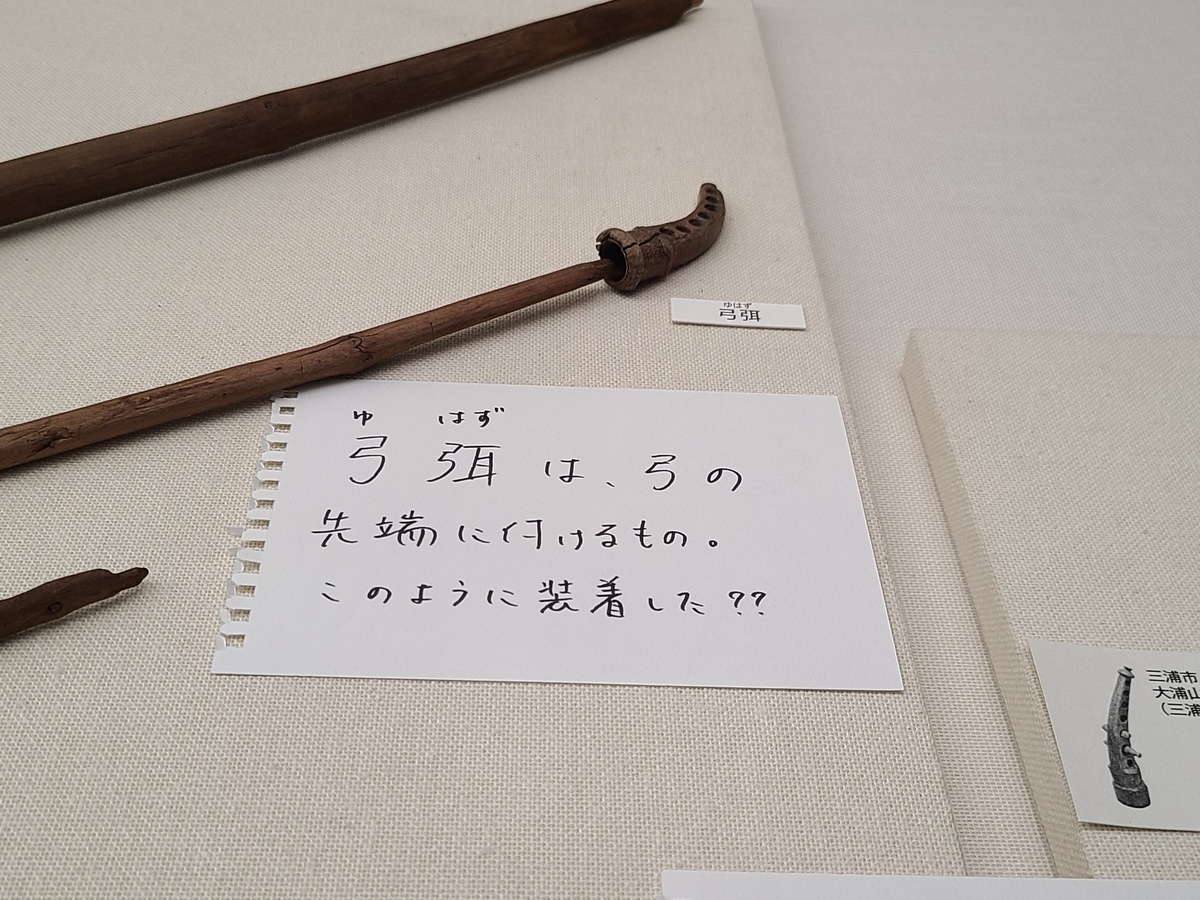 ゆはず
弓弭
ゆ はず
弓弭は、弓の
先端に付けるもの。
このように装着した??
三浦市
大浦山
(三浦